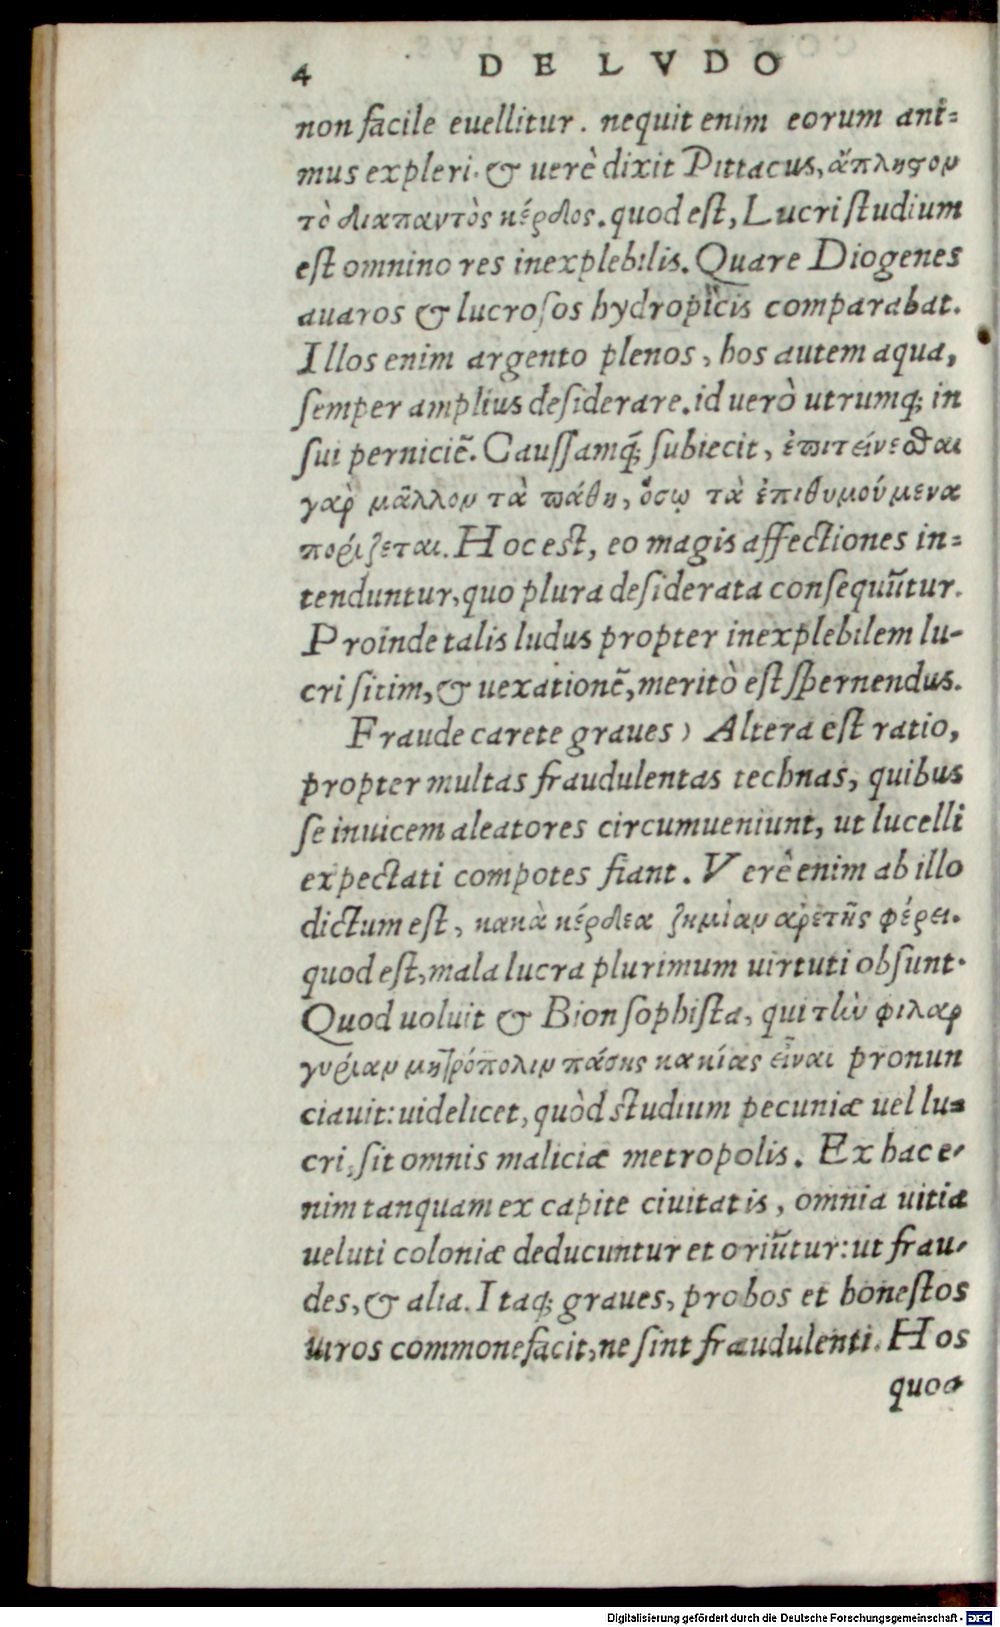 4 DE LVDO
non facile euellitur. nequit enim eorum ani=
mus expleri. & uerè dixit Pittacus, ἄπληστον
τὸ διαπαντὸς κέρδος. quod est, Lucri studium
est omnino res inexplebilis. Quare Diogenes
auaros & lucrosos hydropicis comparabat.
Illos enim argento plenos, hos autem aqua,
semper amplius desiderare. id uerò utrumq; in
sui perniciē. Caussamq́; subiecit, ἐπιτείνεσθαι
γαρ̀ μᾶλλον τὰ πάθη, ὅσῳ τὰ ἐπιθυμούμενα
πορίζεται. Hoc est, eo magis affectiones in=
tenduntur, quo plura desiderata consequūtur.
Proinde talis ludus propter inexplebilem lu-
cri sitim, & uexationē, meritò est spernendus.
Fraude carete graues) Altera est ratio,
propter multas fraudulentas technas, quibus
se inuicem aleatores circumueniunt, ut lucelli
expectati compotes fiant. Verê enim ab illo
dictum est, κακὰ κέρδεα ζημίαν ἀρετῆς φέρει.
quod est, mala lucra plurimum uirtuti obsunt.
Quod uoluit & Bion sophista, qui τὼ φιλαρ
γυρίαν μητρόπολιν πάσης κακίας εἶναι pronun
ciauit: uidelicet, quòd studium pecuniæ uel lu=
cri, sit omnis maliciæ metropolis. Ex hac e-
nim tanquam ex capite ciuitatis, omnia uitia
ueluti coloniæ deducuntur et oriūtur: ut frau-
des, & alia. Itaq; graues, probos et honestos
uiros commonefacit, ne sint fraudulenti. Hos
quod
Digitalisierung gefördert durch die Deutsche Forschungsgemeinschaft - DFG